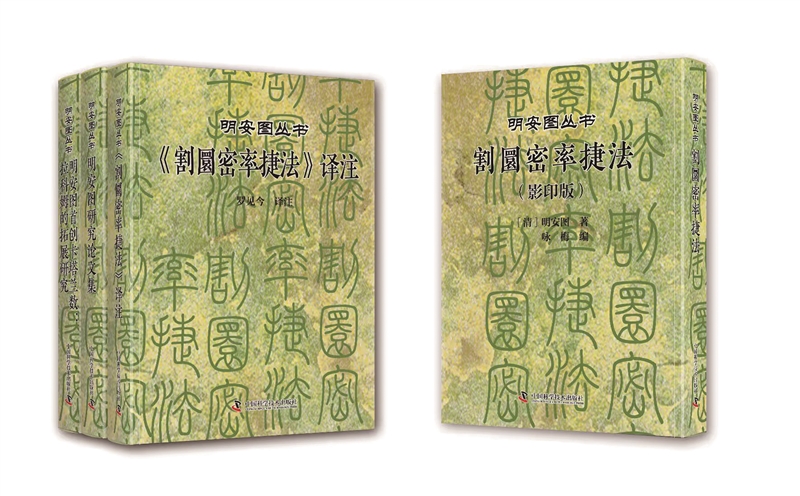 明安图丛书
明安图首创卡塔兰数、
拉科姆的拓展研究
明安图丛书
明安图研究论文集
明安图丛书
《割圜密率捷法》译注
明安图丛书
《割圜密率捷法》译注
罗见今 译注
中国科学技术出版社
明安图丛书
割圜密率捷法
（影印版）
［清］明安图 著
咏梅 编
中国科学技术出版社
明安图丛书
割圜密率捷法